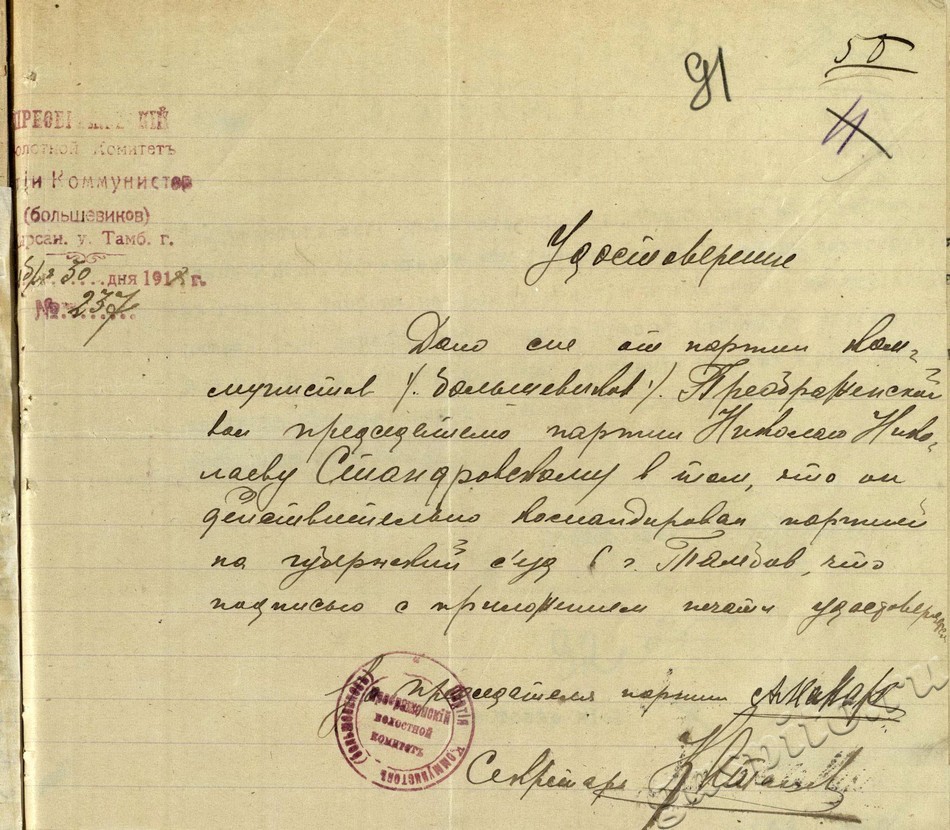 91
50
11
ПРЕОБР
олостной Комитетъ
іи Коммунистов
(большевиков)
ирсан. у. Тамб. г.
30 дня 1918 г.
№ 237
Удостоверение
Дано сие от партии Ком-
мунистов /. большевиков ./. Преображенской
вол председателю партии Николаю Нико-
лаеву Стандровскому в том, что он
действительно командирован партией
на губернский с'езд в г. Тамбов, что
подписью с приложением печати удостоверяется
председателя партии
Преображенскій
волостной
комитетъ
партія Коммунистовъ (большевиковъ)
Секретарь